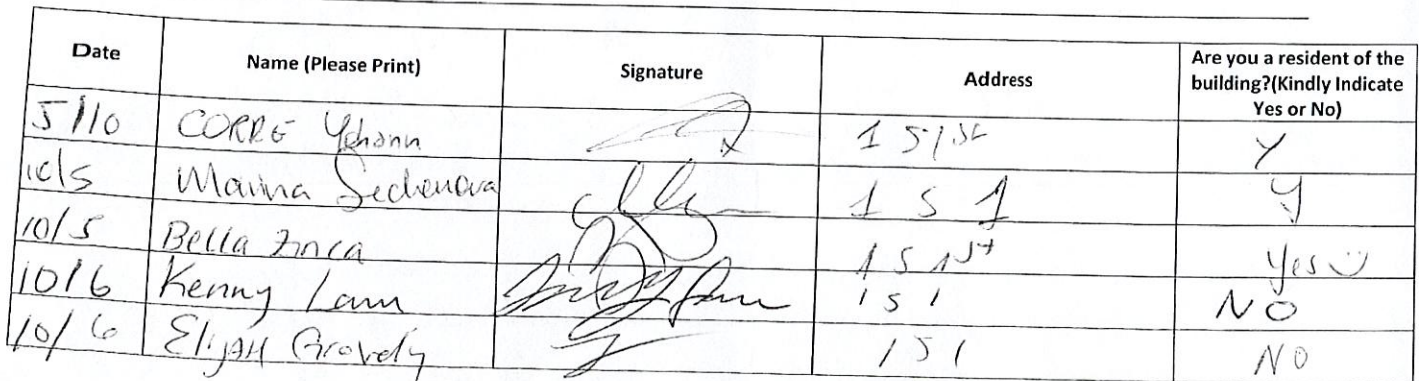 Date Name (Please Print) Signature Address Are you a resident of the building?(Kindly Indicate Yes or No)
5/10 CORRE Yohann 1 S 1st Y
10/5 Marina Sechenova 1 S 1 Y
10/5 Bella Zinca 1 S 1st Yes
10/6 Kenny Lam 1 S 1 NO
10/6 Elijah Gravely 1 S 1 NO